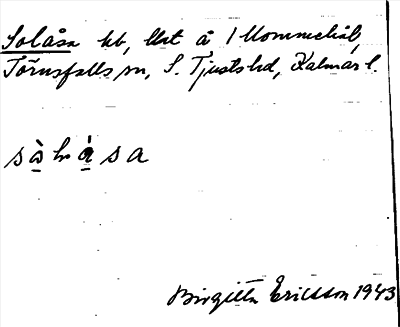 Solåsa hb, llst å 1 Mommehål,
Törnsfalls sn, S. Tjusts hd, Kalmar l.
Birgitta Ericsson 1943